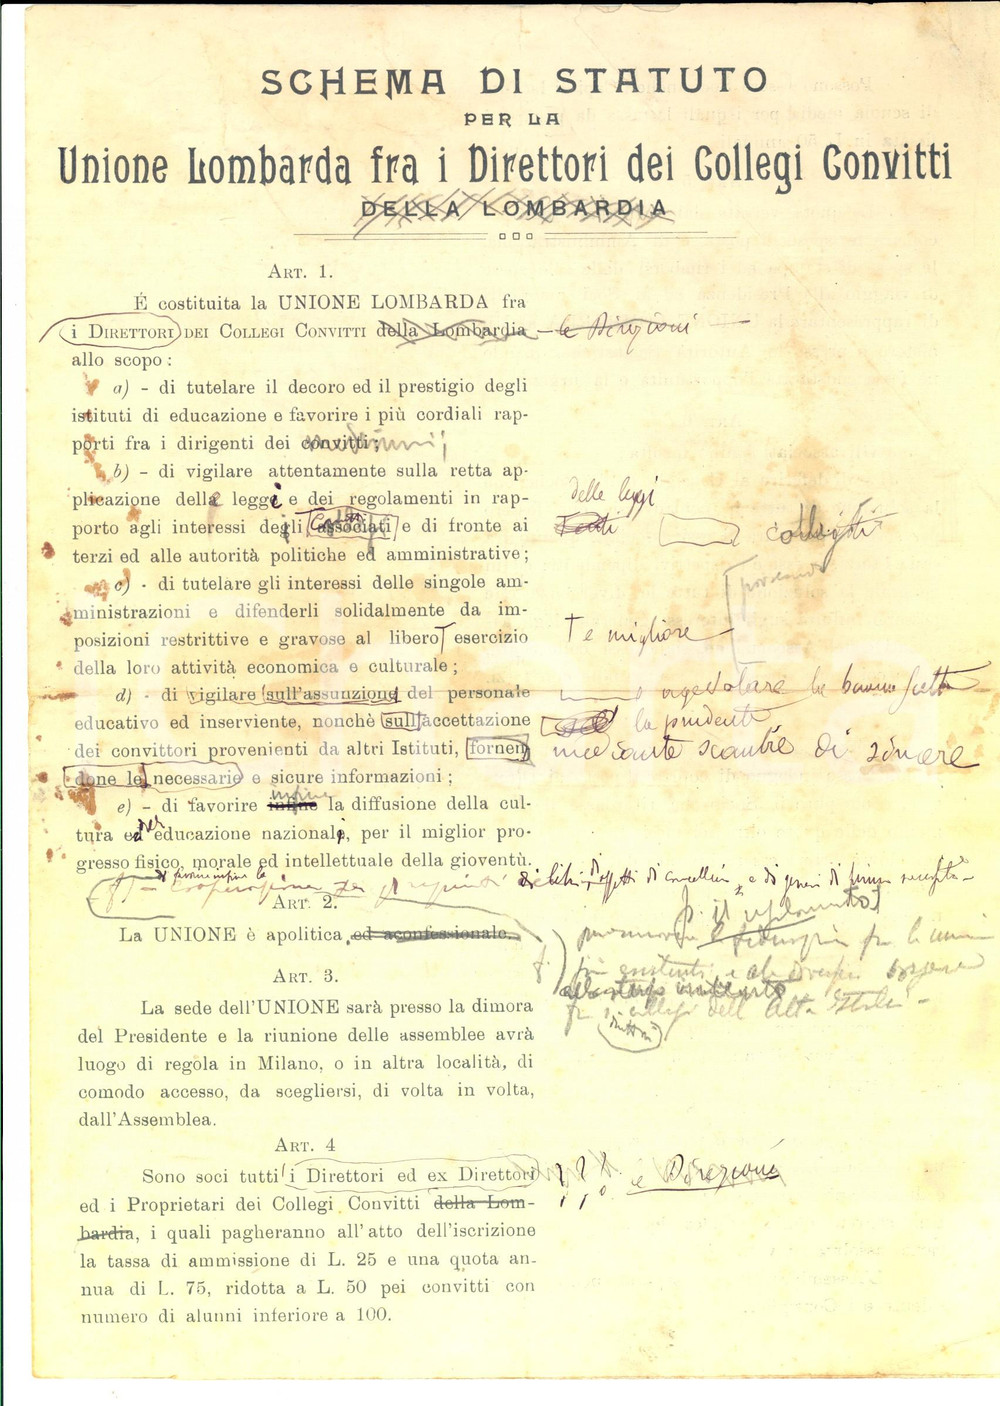 SCHEMA DI STATUTO
PER LA
Unione Lombarda fra i Direttori dei Collegi Convitti
DELLA LOMBARDIA
ART. 1.
É costituita la UNIONE LOMBARDA fra
i DIRETTORI DEI COLLEGI CONVITTI della Lombardia - le Direzioni -
allo scopo:
a) - di tutelare il decoro ed il prestigio degli
istituti di educazione e favorire i più cordiali rap-
porti fra i dirigenti dei convitti;
b) - di vigilare attentamente sulla retta ap-
plicazione delle leggi e dei regolamenti in rap-
delle leggi
porto agli interessi degli associati e di fronte ai
terzi ed alle autorità politiche ed amministrative;
c) - di tutelare gli interessi delle singole am-
ministrazioni e difenderli solidalmente da im-
posizioni restrittive e gravose al libero esercizio
e migliore
della loro attività economica e culturale;
d) - di vigilare sull'assunzione del personale
educativo ed inserviente, nonchè sull'accettazione
la prudente
dei convittori provenienti da altri Istituti, fornen-
mediante scambio di sincere
done le necessarie e sicure informazioni;
e) - di favorire infine la diffusione della cul-
tura ed educazione nazionale, per il miglior pro-
gresso fisico, morale ed intellettuale della gioventù.
ART. 2.
La UNIONE è apolitica ed aconfessionale.
ART. 3.
La sede dell'UNIONE sarà presso la dimora
del Presidente e la riunione delle assemblee avrà
luogo di regola in Milano, o in altra località, di
comodo accesso, da scegliersi, di volta in volta,
dall'Assemblea.
ART. 4
Sono soci tutti i Direttori ed ex Direttori
e Direzioni
ed i Proprietari dei Collegi Convitti della Lom-
bardia, i quali pagheranno all'atto dell'iscrizione
la tassa di ammissione di L. 25 e una quota an-
nua di L. 75, ridotta a L. 50 pei convitti con
numero di alunni inferiore a 100.